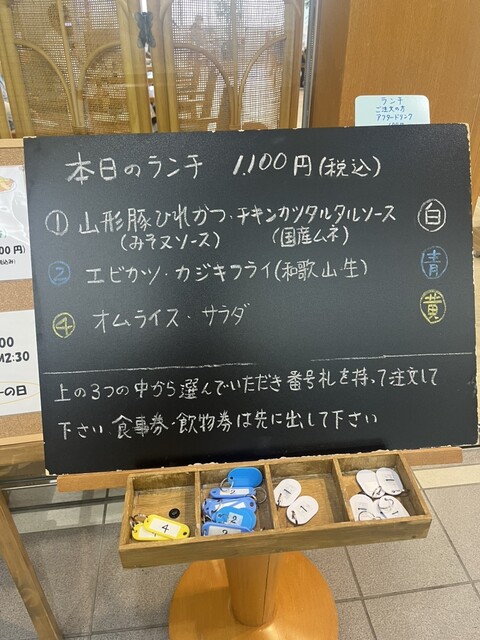 ランチ
ご注文の方
アフタードリンク
本日のランチ 1,100円(税込)
① 山形豚ひれかつ・チキンカツタルタルソース 白
(みそorソース) (国産ムネ)
② エビカツ・カジキフライ(和歌山・生) 青
④ オムライス・サラダ 黄
上の3つの中から選んでいただき番号札を持って注文して
下さい。食事券・飲物券は先に出して下さい
00円)
00
M2:30
の日
4
2
2
2
1
1
1